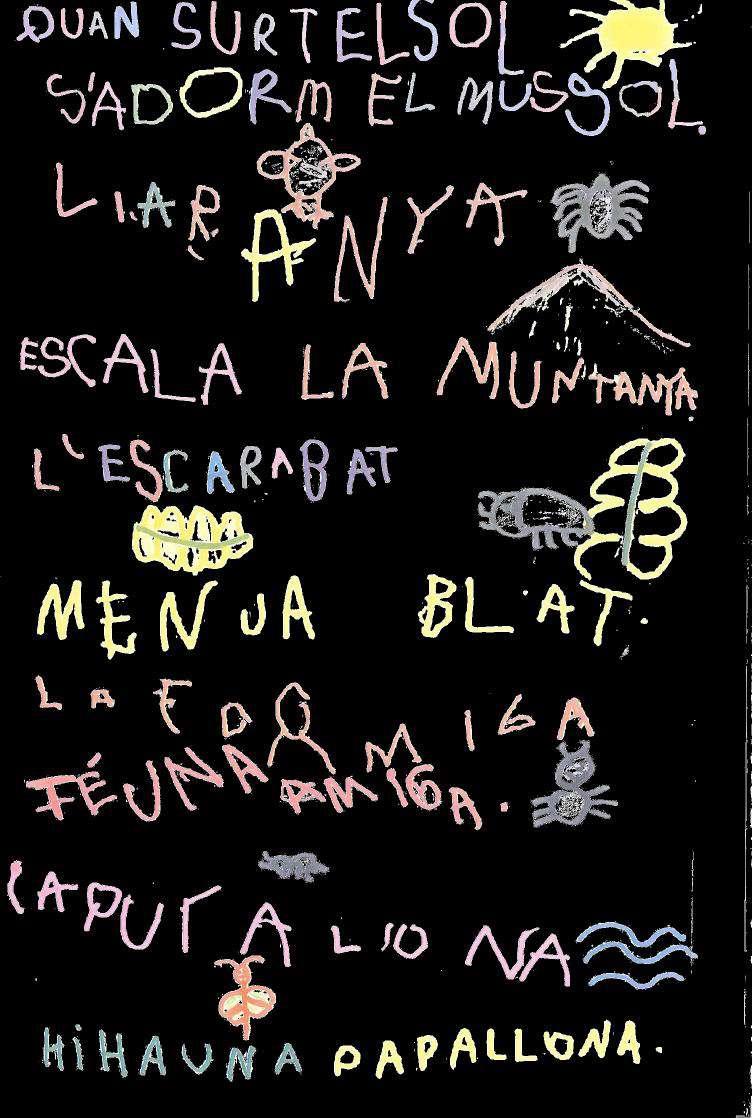 QUAN SURT EL SOL
S'ADORM EL MUSSOL.
L'ARANYA
ESCALA LA MUNTANYA.
L'ESCARABAT
MENJA BLAT.
LA FORMIGA
TÉ UNA AMIGA.
A
HI HA UNA PAPALLONA.